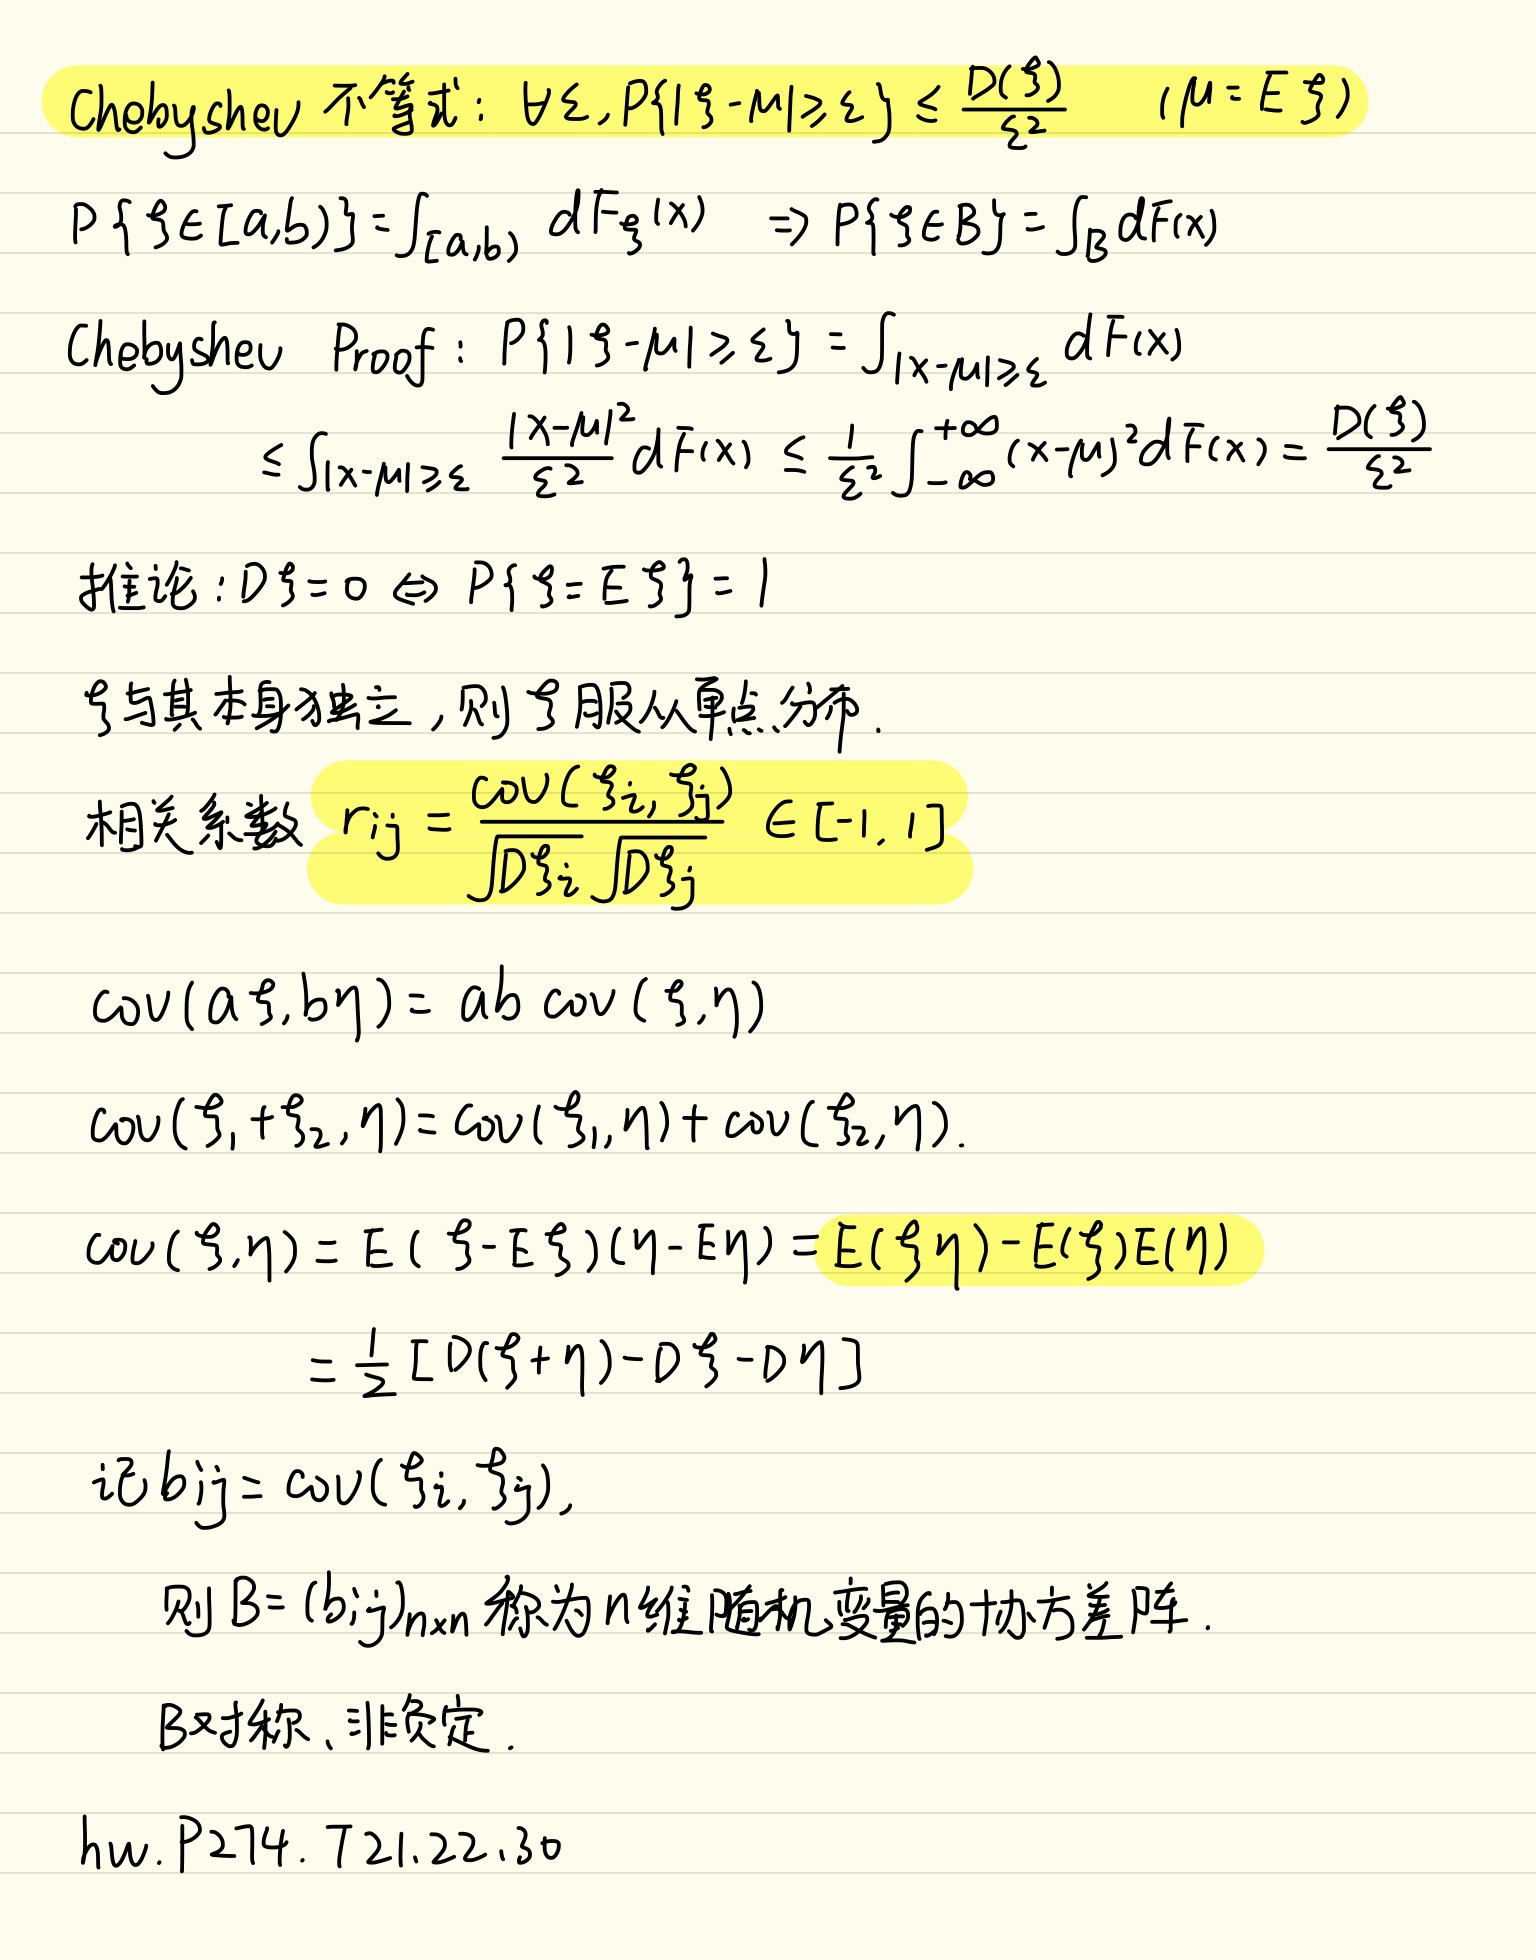 Chebyshev 不等式: ∀ε, P{|ξ-μ|≥ε} ≤ D(ξ)/ε² (μ=Eξ)
P{ξ∈[a,b)}=∫_[a,b) dF_ξ(x) ⇒ P{ξ∈B}=∫_B dF(x)
Chebyshev Proof: P{|ξ-μ|≥ε} = ∫_|x-μ|≥ε dF(x)
≤ ∫_|x-μ|≥ε |x-μ|²/ε² dF(x) ≤ 1/ε² ∫_-∞^+∞ (x-μ)² dF(x) = D(ξ)/ε²
推论: Dξ=0 ⇔ P{ξ=Eξ}=1
ξ与其本身独立,则ξ服从单点分布.
相关系数 r_ij = cov(ξ_i, ξ_j)/(√Dξ_i √Dξ_j) ∈[-1, 1]
cov(aξ,bη)= ab cov(ξ,η)
cov(ξ_1+ξ_2, η)=cov(ξ_1,η)+cov(ξ_2,η).
cov(ξ,η) = E(ξ-Eξ)(η-Eη) = E(ξη)-E(ξ)E(η)
= 1/2 [D(ξ+η)-Dξ-Dη]
记 b_ij = cov(ξ_i, ξ_j),
则 B=(b_ij)_n×n 称为n维随机变量的协方差阵.
B对称、非负定.
hw. P274. T21.22.30